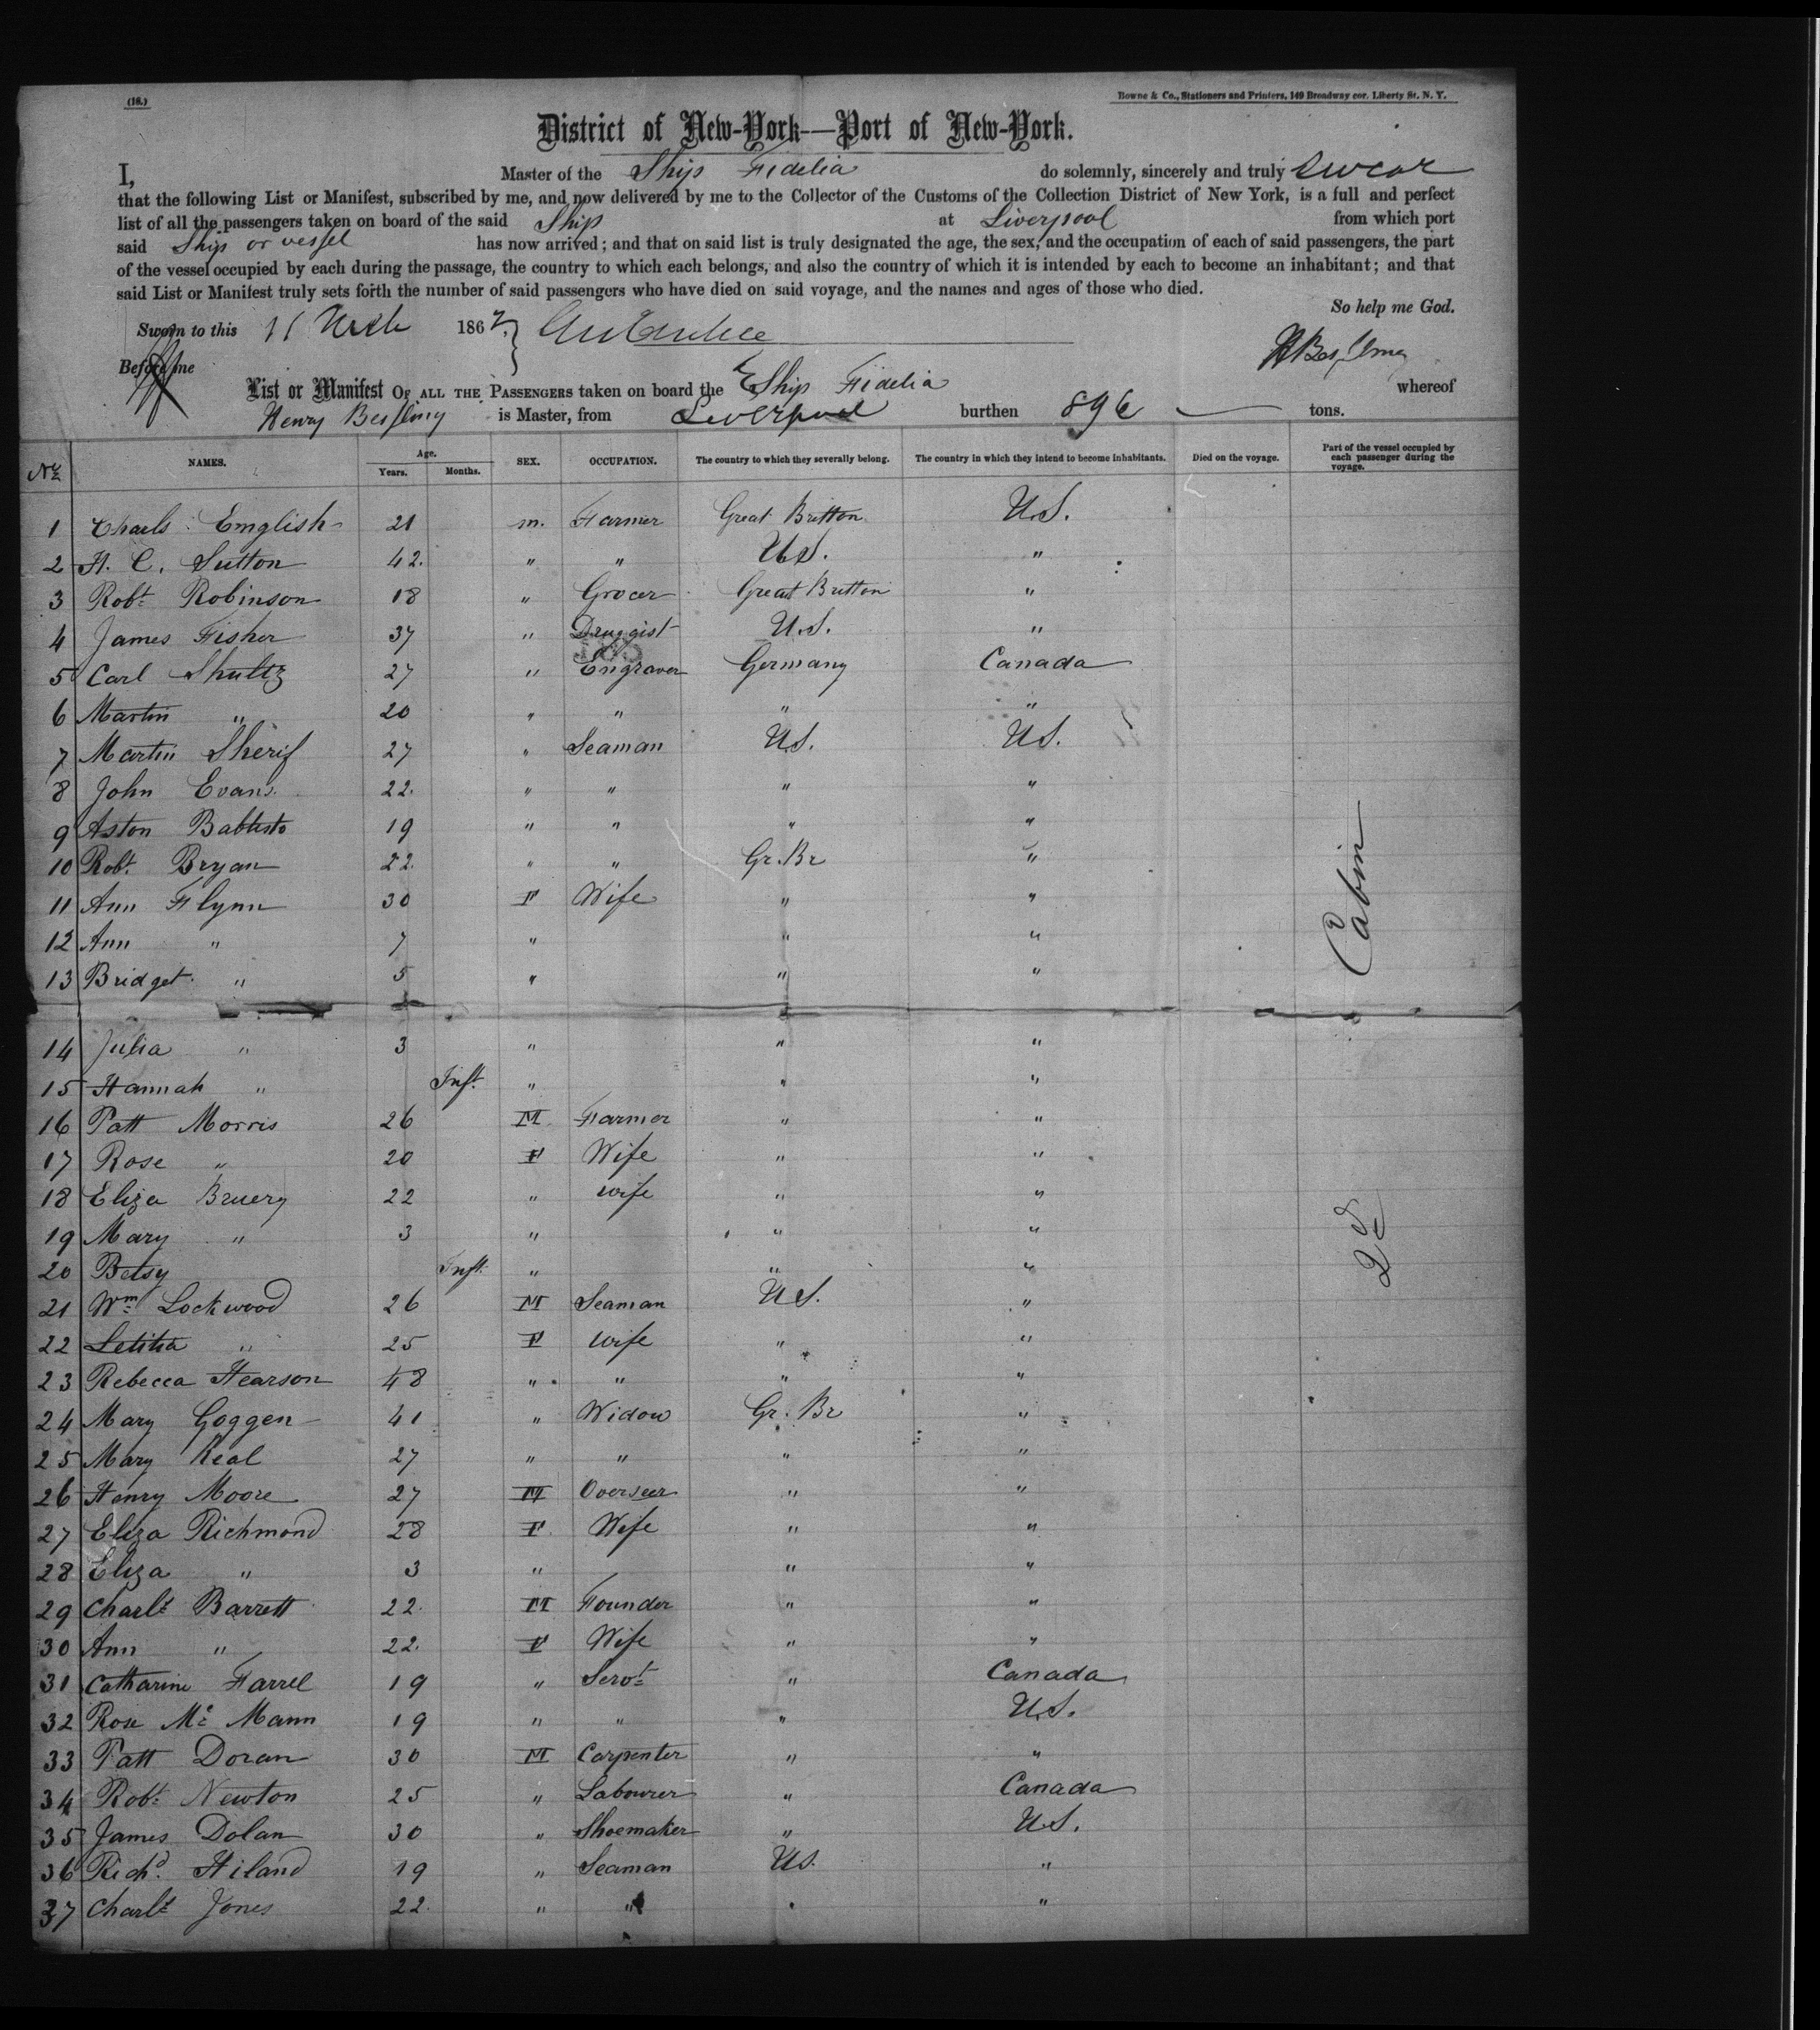 (18.)
Bowne & Co., Stationers and Printers, 149 Broadway cor. Liberty St. N. Y.
District of New-York—Port of New-York.
I, Master of the Ship Fidelia do solemnly, sincerely and truly swear
that the following List or Manifest, subscribed by me, and now delivered by me to the Collector of the Customs of the Collection District of New York, is a full and perfect
list of all the passengers taken on board of the said Ship at Liverpool from which port
said Ship or vessel has now arrived; and that on said list is truly designated the age, the sex, and the occupation of each of said passengers, the part
of the vessel occupied by each during the passage, the country to which each belongs, and also the country of which it is intended by each to become an inhabitant; and that
said List or Manifest truly sets forth the number of said passengers who have died on said voyage, and the names and ages of those who died.
So help me God.
Sworn to this 11 186
Before me
List or Manifest OF ALL THE PASSENGERS taken on board the Ship Fidelia whereof
Henry is Master, from Liverpool burthen 896 tons.
No. NAMES. Age. Years. Months. SEX. OCCUPATION. The country to which they severally belong. The country in which they intend to become inhabitants. Died on the voyage. Part of the vessel occupied by each passenger during the voyage.
1 Chaels Emglish 21 m. Farmer Great Britton U.S.
2 H. C. Sutton 42. " " U.S. "
3 Robt Robinson 18 " Grocer Great Britton "
4 James Fisher 37 " Druggist U.S. "
5 Carl Shultz 27 " Engraver Germany Canada
6 Martin " 20 " " " "
7 Martin Sherif 27 " Seaman U.S. U.S.
8 John Evans 22. " " " "
9 Aston Babtisto 19 " " " "
10 Robt Bryan 22. " " Gr. Br "
11 Ann Flynn 30 F Wife " "
12 Ann " 7 " " "
13 Bridget " 5 " " "
Cabin
14 Julia " 3 " " "
15 Hannah " Inft. " " "
16 Patt Morris 26 M Farmer " "
17 Rose " 20 F Wife " "
18 Eliza Bruery 22 " wife " "
19 Mary " 3 " " "
20 Betsy Inft. " " "
2d
21 Wm Lockwood 26 M Seaman U.S. "
22 Letitia " 25 F wife " "
23 Rebecca Hearson 48 " " " "
24 Mary Goggen 41 " Widow Gr. Br "
25 Mary Keal 27 " " " "
26 Henry Moore 27 M Overseer " "
27 Eliza Richmond 28 F Wife " "
28 Eliza " 3 " " "
29 Charls Barrett 22. M Founder " "
30 Ann " 22. F Wife " "
31 Catharine Farrel 19 " Servt " Canada
32 Rose Mc Mann 19 " " " U.S.
33 Patt Doran 30 M Carpenter " "
34 Robt Newton 25 " Labourer " Canada
35 James Dolan 30 " Shoemaker " U.S.
36 Richd Hiland 19 " Seaman U.S. "
37 Charls Jones 22. " " "